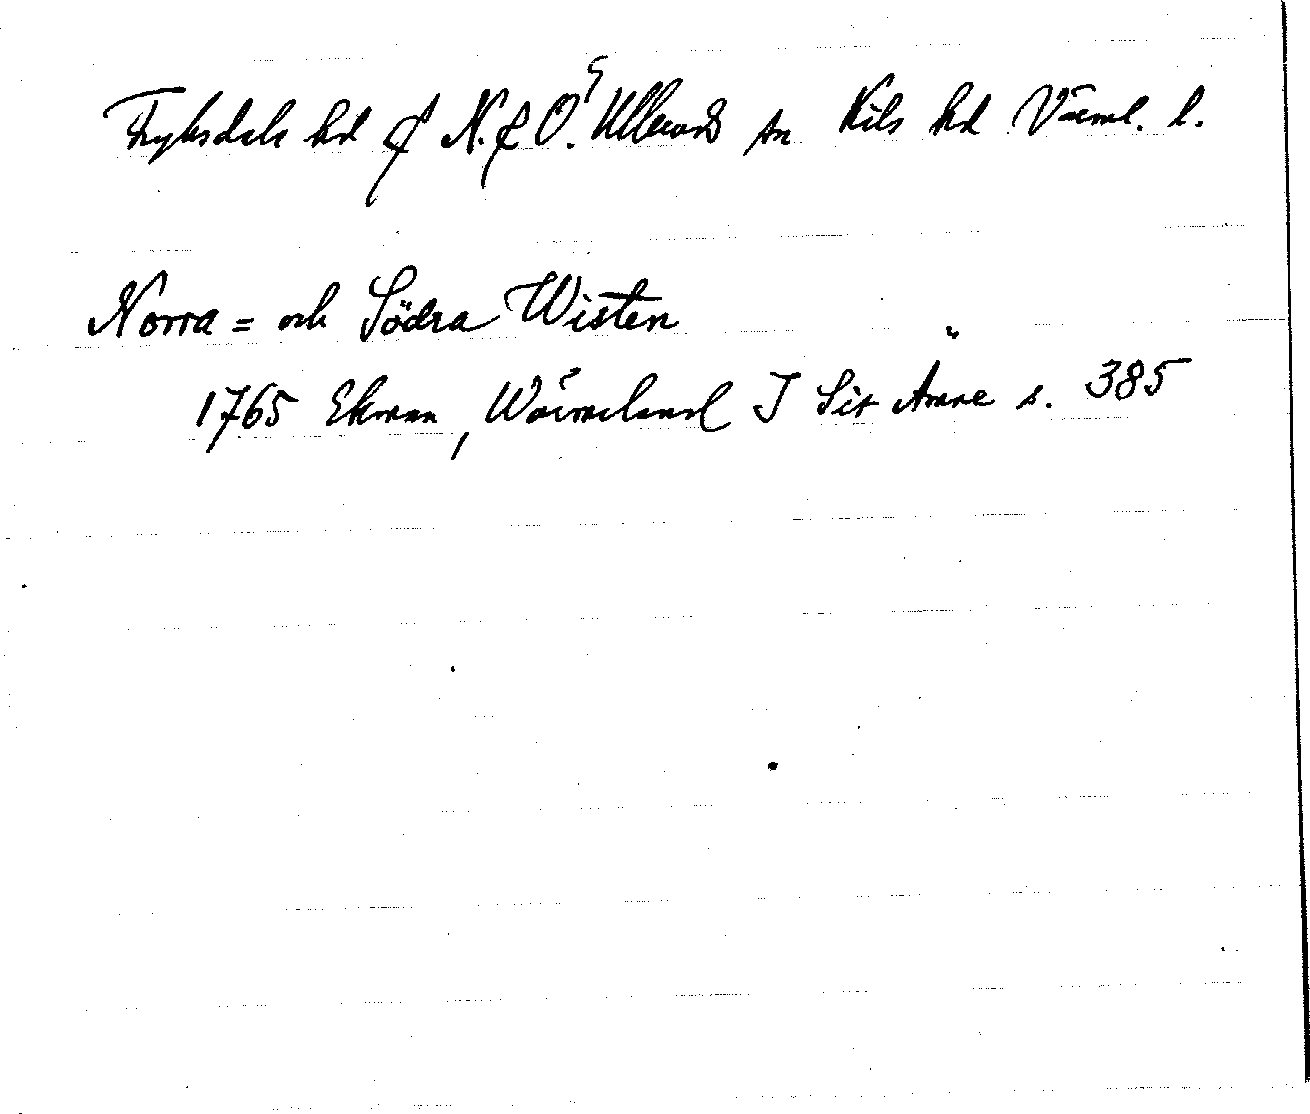 Fryksdals hd & N. & Ö. Ullerud sn Kils hd Värml. l.
Norra= och Södra Wisten "
1765 Ekman, Wärmeland I Sit Amne s. 385